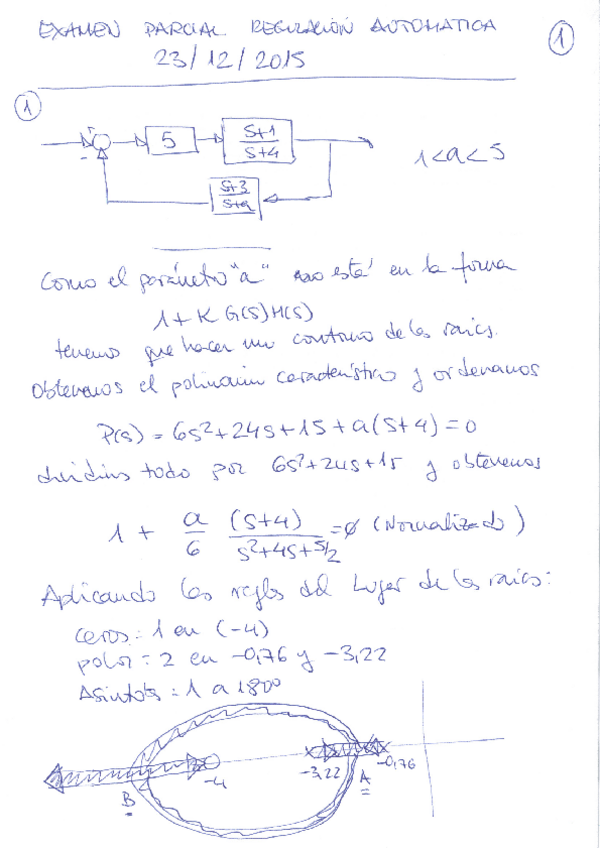 EXAMEN PARCIAL REGULACIÓN AUTOMATICA
1
23/12/2015
1
5
S+1
S+4
1<a<5
-
S+3
S+a
Como el parámetro "a" no está en la forma
1+K G(s)H(s)
tenemos que hacer un contorno de las raices.
Obtenemos el polinomio característico y ordenamos
P(s) = 6s²+24s+15+a(s+4)=0
dividimos todo por 6s²+24s+15 y obtenemos
1 + a/6 (s+4)/(s²+4s+5/2) =0 (Normalizado)
Aplicando las reglas del Lugar de las raices:
ceros: 1 en (-4)
polos = 2 en -0,76 y -3,22
Asintotas = 1 a 180º
-4
-3,22
-0,76
B
A